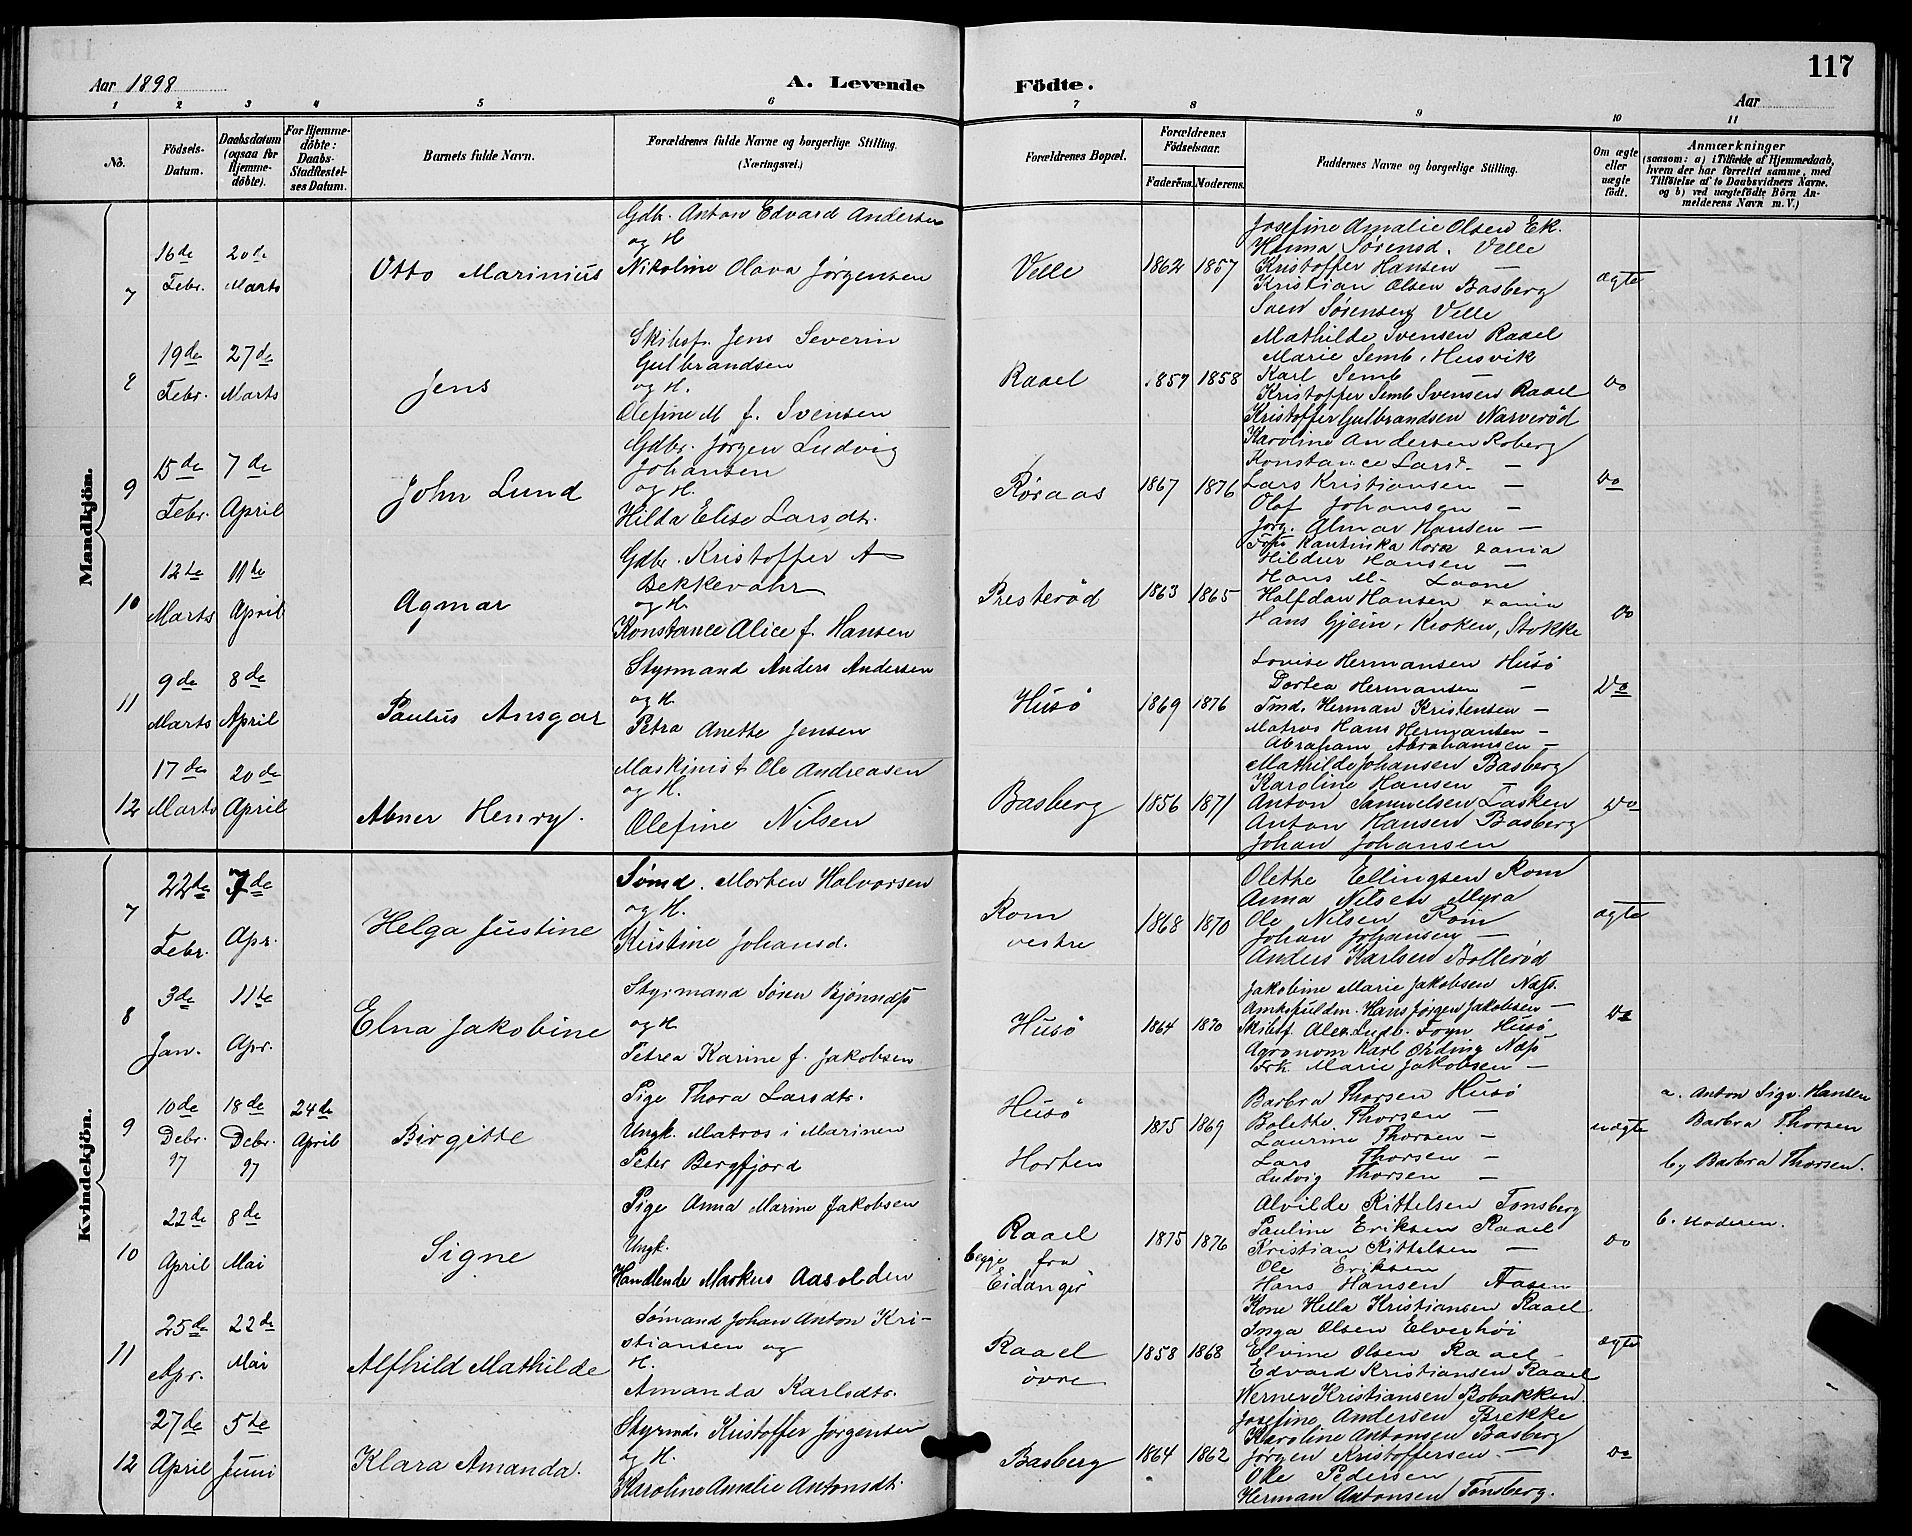 117
Aar 1898
A. Levende Födte.
Aar
1 2 3 4 5 6 7 8 9 10 11
No.
Födsels-Datum.
Daabsdatum (ogsaa for Hjemme-döbte).
For Hjemme-döbte: Daabs-Stadfæstel-ses Datum.
Barnets fulde Navn.
Forældrenes fulde Navne og borgerlige Stilling. (Næringsvei.)
Forældrenes Bopæl.
Forældrenes Födselsaar.
Faderens. Moderens.
Faddernes Navne og borgerlige Stilling.
Om ægte eller uægte født.
Anmærkninger
(saasom: a) i Tilfælde af Hjemmedaab, hvem der har forrettet samme, med Tilföielse af to Daabsvidners Navne. og b) ved uægtefödte Börn An-melderens Navn m. V.)
Mandkjön.
7
16de Febr.
20de Marts
Otto Marinius
Gdb. Anton Edvard Andersen
og H
Nikoline Olava Jørgensen
Velle
1862 1857
Josefine Amalie Olsen Ek.
Hanna Sørensd. Velle
Kristoffer Hansen —
Kristian Olsen Basberg
Sven Sørensen Velle
ægte
8
19de Febr.
27de Marts
Jens
Skibsf. Jens Severin
Gulbrandsen
og H.
Olefine M f. Svensen
Raael
1857 1858
Mathilde Svensen Raael
Marie Semb, Husvik
Karl Semb —
Kristoffer Semb Svensen Raael
Kristoffer Gulbrandsen Narverød
Do
9
15de Febr.
7de April
John Lund
Gdbr. Jørgen Ludvig
Johansen
og H.
Hilda Elise Larsdtr.
Røraas
1867 1876
Karoline Andersen Roberg
Konstance Larsd. —
Lars Kristiansen —
Olaf Johansen —
Jørg. Almar Hansen —
Do
10
12te Marts
11te April
Agmar
Gdbr. Kristoffer A
Bekkevahr
og H.
Konstance Alice f. Hansen
Presterød
1863 1865
Frk. Kantinka Horn Xania
Hildur Hansen —
Hans M. Laane
Halfdan Hansen Xania
Hans Gjein, Kroken, Stokke
Do
11
9de Marts
8de April
Paulus Ansgar
Styrmand Anders Andersen
og H.
Petra Anette Jensen
Husö
1869 1876
Lovise Hermansen Husö
Dortea Hermansen —
Tmd. Herman Kristensen —
Matros Hans Hermansen —
Abraham Abrahamsen —
Do
12
17de Marts
20de April
Abner Henry.
Maskinist Ole Andreasen
og H.
Olefine Nilsen
Basberg
1856 1871
Mathilde Johansen Basberg
Karoline Hansen —
Anton Samuelsen Låsken
Anton Hansen Basberg
Johan Johansen
Do
Kvindekjön.
7
22de Febr.
7de Apr.
Helga Justine
Sømd. Morten Halvorsen
og H.
Kirstine Johansd.
Rom
vestre
1868 1870
Olethe Ellingsen Rom
Anna Nilsen Myra
Ole Nilsen Rom
Johan Johansen —
Anders Karlsen Bollerød
ægte
8
3de Jan.
11te Apr.
Elna Jakobine
Styrmand Sören Bjönness
og H
Petrea Karine f. Jakobsen
Husö
1864 1870
Jakobine Marie Jakobsen Næss
Amtsfuldm. Hans Jörgen Jakobsen —
Skibsf. Alex. Ludv. Foyn Husö
Agronom Karl Ording Næss
Frk. Marie Jakobsen —
Do
9
10de Debr. 97
18de Debr. 97
24de April
Birgitte
Pige Thora Larsdtr.
Ungk. Matros i Marinen
Peter Bergfjord
Husö
Horten
1875 1869
Barbra Thorsen Husö
Bolette Thorsen —
Laurine Thorsen —
Lars Thorsen —
Ludvig Thorsen —
uægte
a. Anton Sigv. Hansen
Barbra Thorsen
b, Barbra Thorsen.
10
22de April
8de Mai
Signe
Pige Anna Marine Jakobsen
Ungk.
Handlende Markus Aasolden
Raael
begge fra
Eidanger
1875 1876
Alvilde Kittelsen Tønsberg
Pauline Eriksen Raael
Kristian Kittelsen —
Ole Eriksen
Hans Hansen Aasen
Do
b. Moderen.
11
25de Apr.
22de Mai
Alfhild Mathilde
Sømand Johan Anton Kri-
stiansen og
H.
Amanda Karlsdtr.
Raael
øvre
1858 1868
Kone Hella Kristiansen Raael
Inga Olsen Elverhöi
Elvine Olsen Raael
Edvard Kristiansen Raael
Werner Kristiansen Bobakken
ægte
12
27de April
5te Juni
Klara Amanda.
Styrmd. Kristoffer Jørgensen
og H.
Karoline Amalie Antonsdt.
Basberg
1864 1862
Josefine Andersen Brekke
Karoline Antonsen Basberg
Jörgen Kristoffersen —
Ole Pedersen
Herman Antonsen Tønsberg.
Do